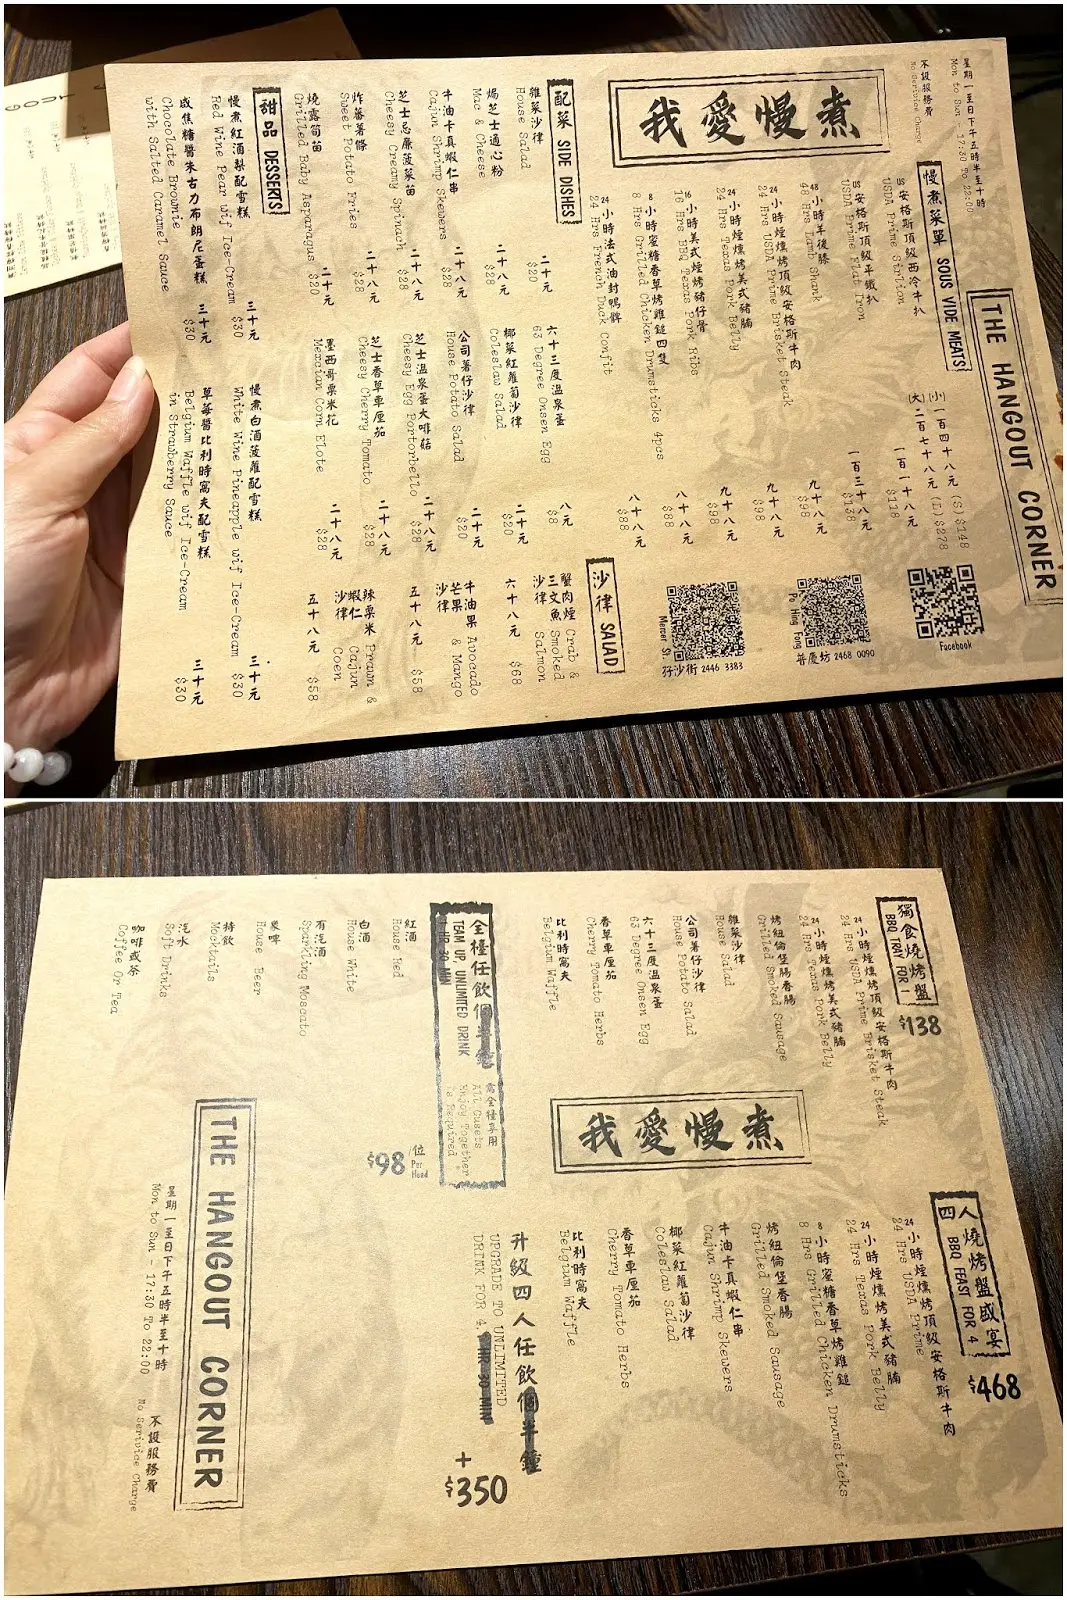 THE HANGOUT CORNER
星期一至日下午五時半至十時
Mon to Sun - 17:30 To 22:00
不設服務費
No Serivice Charge
我愛慢煮
慢煮菜單 SOUS VIDE MEATS!
US安格斯頂級西冷牛扒
USDA Prime Sirlion
(小)一百四十八元 (S) $148
(大)二百七十八元 (L) $278
US安格斯頂級平鐵扒
USDA Prime Flat Iron
一百一十八元
$118
48小時羊後膝
48 Hrs Lamb Shank
一百三十八元
$138
24小時煙燻烤頂級安格斯牛肉
24 Hrs USDA Prime Brisket Steak
九十八元
$98
24小時煙燻烤美式豬腩
24 Hrs Texas Pork Belly
九十八元
$98
16小時美式煙烤豬仔骨
16 Hrs BBQ Texas Pork Ribs
九十八元
$98
8小時蜜糖香草烤雞鎚四隻
8 Hrs Grilled Chicken Drumsticks 4pcs
八十八元
$88
24小時法式油封鴨髀
24 Hrs French Duck Confit
八十八元
$88
Facebook
Po Hing Fong
普慶坊 2468 0090
Mercer St.
孖沙街 2446 3383
配菜 SIDE DISHES
雜菜沙律
House Salad
二十元
$20
焗芝士通勾粉
Mac & Cheese
二十八元
$28
牛油卡真蝦仁串
Cajun Shrimp Skewers
二十八元
$28
芝士忌廉菠菜苗
Cheesy Creamy Spinach
二十八元
$28
炸蕃薯條
Sweet Potato Fries
二十八元
$28
燒露筍苗
Grilled Baby Asparagus
二十元
$20
六十三度溫泉蛋
63 Degree Onsen Egg
八元
$8
椰菜紅蘿蔔沙律
Coleslaw Salad
二十元
$20
公司薯仔沙律
House Potato Salad
二十元
$20
芝士溫泉蛋大啡菇
Cheesy Egg Portorbello
二十八元
$28
芝士香草車厘茄
Cheesy Cherry Tomato
二十八元
$28
墨西哥粟米花
Mexcian Corn Elote
二十八元
$28
沙律 SALAD
蟹肉煙三文魚沙律
Crab & Smoked Salmon
六十八元
$68
牛油果芒果沙律
Avocado & Mango
五十八元
$58
辣粟米蝦仁沙律
Prawn & Cajun Coen
五十八元
$58
甜品 DESSERTS
慢煮紅酒梨配雪糕
Red Wine Pear wif Ice-Cream
三十元
$30
咸焦糖醬朱古力布朗尼蛋糕
Chocolate Brownie
with Salted Caramel Sauce
三十元
$30
慢煮白酒菠蘿配雪糕
White Wine Pineapple wif Ice-Cream
三十元
$30
草莓醬比利時窩夫配雪糕
Belgium Waffle wif Ice-Cream
in Strawberry Sauce
三十元
$30
獨食燒烤盤
BBQ TRAY FOR 1
$138
24小時煙燻烤頂級安格斯牛肉
24 Hrs USDA Prime Brisket Steak
24小時煙燻烤美式豬腩
24 Hrs Texas Pork Belly
烤紐倫堡香腸
Grilled Smoked Sausage
雜菜沙律
House Salad
公司薯仔沙律
House Potato Salad
六十三度溫泉蛋
63 Degree Onsen Egg
香草車厘茄
Cherry Tomato Herbs
比利時窩夫
Belgium Waffle
我愛慢煮
四人燒烤盤盛宴
BBQ FEAST FOR 4
$468
24小時煙燻烤頂級安格斯牛肉
24 Hrs USDA Prime
24小時煙燻烤美式豬腩
24 Hrs Texas Pork Belly
8小時蜜糖香草烤雞鎚
8 Hrs Grilled Chicken Drumsticks
烤紐倫堡香腸
Grilled Smoked Sausage
牛油卡真蝦仁串
Cajun Shrimp Skewers
椰菜紅蘿蔔沙律
Coleslaw Salad
香草車厘茄
Cherry Tomato Herbs
比利時窩夫
Belgium Waffle
升級四人任飲個半鐘
UPGRADE TO UNLIMITED
DRINK FOR 4, 1 HR 30 MIN
+
$350
全檯任飲個半鐘
TEAM UP UNLIMITED DRINK
需全檯享用
All Gusets
Enjoy Together
is Required
$98 /位
Per Head
紅酒
House Red
白酒
House White
有汽酒
Sparkling Moscato
House Beer
特飲
Mocktails
汽水
Soft Drinks
咖啡或茶
Coffee Or Tea
THE HANGOUT CORNER
星期一至日下午五時半至十時
Mon to Sun - 17:30 To 22:00
不設服務費
No Serivice Charge